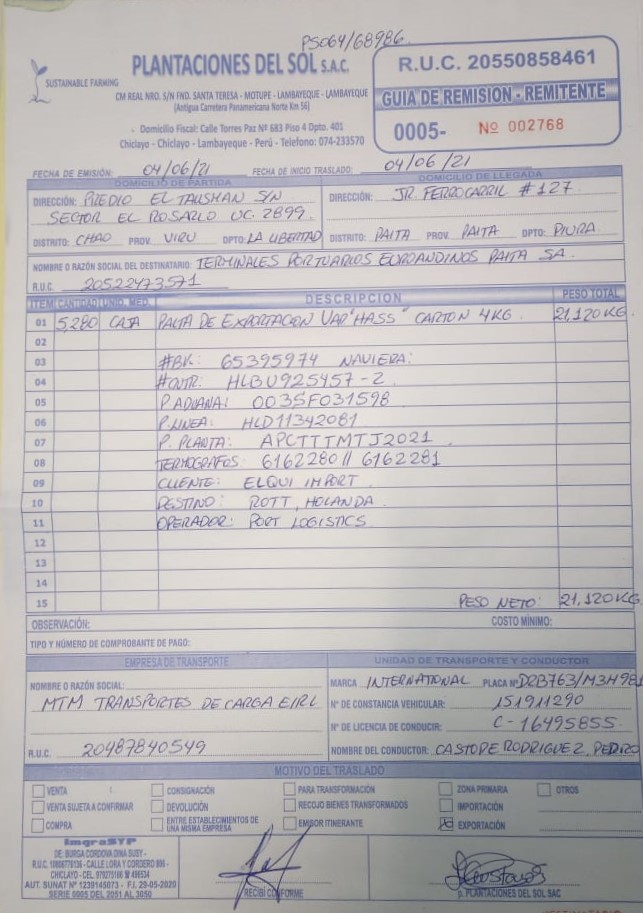 PS064/68986
SUSTAINABLE FARMING
PLANTACIONES DEL SOL S.A.C.
CM REAL NRO. S/N FND. SANTA TERESA - MOTUPE - LAMBAYEQUE - LAMBAYEQUE
(Antigua Carretera Panamericana Norte Km 56)
Domicilio Fiscal: Calle Torres Paz Nº 683 Piso 4 Dpto. 401
Chiclayo - Chiclayo - Lambayeque - Perú - Telefono: 074-233570
R.U.C. 20550858461
GUIA DE REMISION - REMITENTE
0005- Nº 002768
FECHA DE EMISIÓN: 04/06/21 FECHA DE INICIO TRASLADO: 04/06/21
DOMICILIO DE PARTIDA DOMICILIO DE LLEGADA
DIRECCIÓN: PREDIO EL TALISMAN S/N DIRECCIÓN: JR. FERROCARRIL #127
SECTOR EL ROSARIO UC. 2899
DISTRITO: CHAO PROV. VIRU DPTO: LA LIBERTAD DISTRITO: PAITA PROV. PAITA DPTO: PIURA
NOMBRE O RAZÓN SOCIAL DEL DESTINATARIO: TERMINALES PORTUARIOS EUROANDINOS PAITA SA.
R.U.C. 20522473571
ITEM CANTIDAD UNID. MED. DESCRIPCION PESO TOTAL
01 5,280 CAJA PALTA DE EXPORTACION VAR "HASS" CARTON 4KG. 21,120KG
02
03 #BK: 65395974 NAVIERA:
04 #CNTR: HLBU925457-2
05 P.ADUANA: 0035F031598
06 P.LINEA: HLD11342081
07 P. PLANTA: APCTTTMTJ2021
08 TERMOGRAFOS: 6162280 // 6162281
09 CLIENTE: ELQUI IMPORT
10 DESTINO: ROTT, HOLANDA
11 OPERADOR: PORT LOGISTICS
12
13
14
15 PESO NETO: 21,120KG
OBSERVACIÓN: COSTO MÍNIMO:
TIPO Y NÚMERO DE COMPROBANTE DE PAGO:
EMPRESA DE TRANSPORTE UNIDAD DE TRANSPORTE Y CONDUCTOR
NOMBRE O RAZÓN SOCIAL: MARCA INTERNATIONAL PLACA Nº
MTM TRANSPORTES DE CARGA EIRL Nº DE CONSTANCIA VEHICULAR: 151911290
Nº DE LICENCIA DE CONDUCIR: C-16495855
R.U.C. 20487840549 NOMBRE DEL CONDUCTOR: CASTOPE RODRIGUEZ, PEDRO
MOTIVO DEL TRASLADO
VENTA CONSIGNACIÓN PARA TRANSFORMACIÓN ZONA PRIMARIA OTROS
VENTA SUJETA A CONFIRMAR DEVOLUCIÓN RECOJO BIENES TRANSFORMADOS IMPORTACIÓN
COMPRA ENTRE ESTABLECIMIENTOS DE UNA MISMA EMPRESA EMISOR ITINERANTE EXPORTACIÓN
ImgraSYP
DE: BURGA CORDOVA DINA SUSY -
CALLE LORA Y CORDERO 806 -
CHICLAYO
AUT. SUNAT Nº 1239145073 - F.I. 29-05-2020
SERIE 0005 DEL 2051 AL 3050
RECIBI CONFORME
p. PLANTACIONES DEL SOL SAC